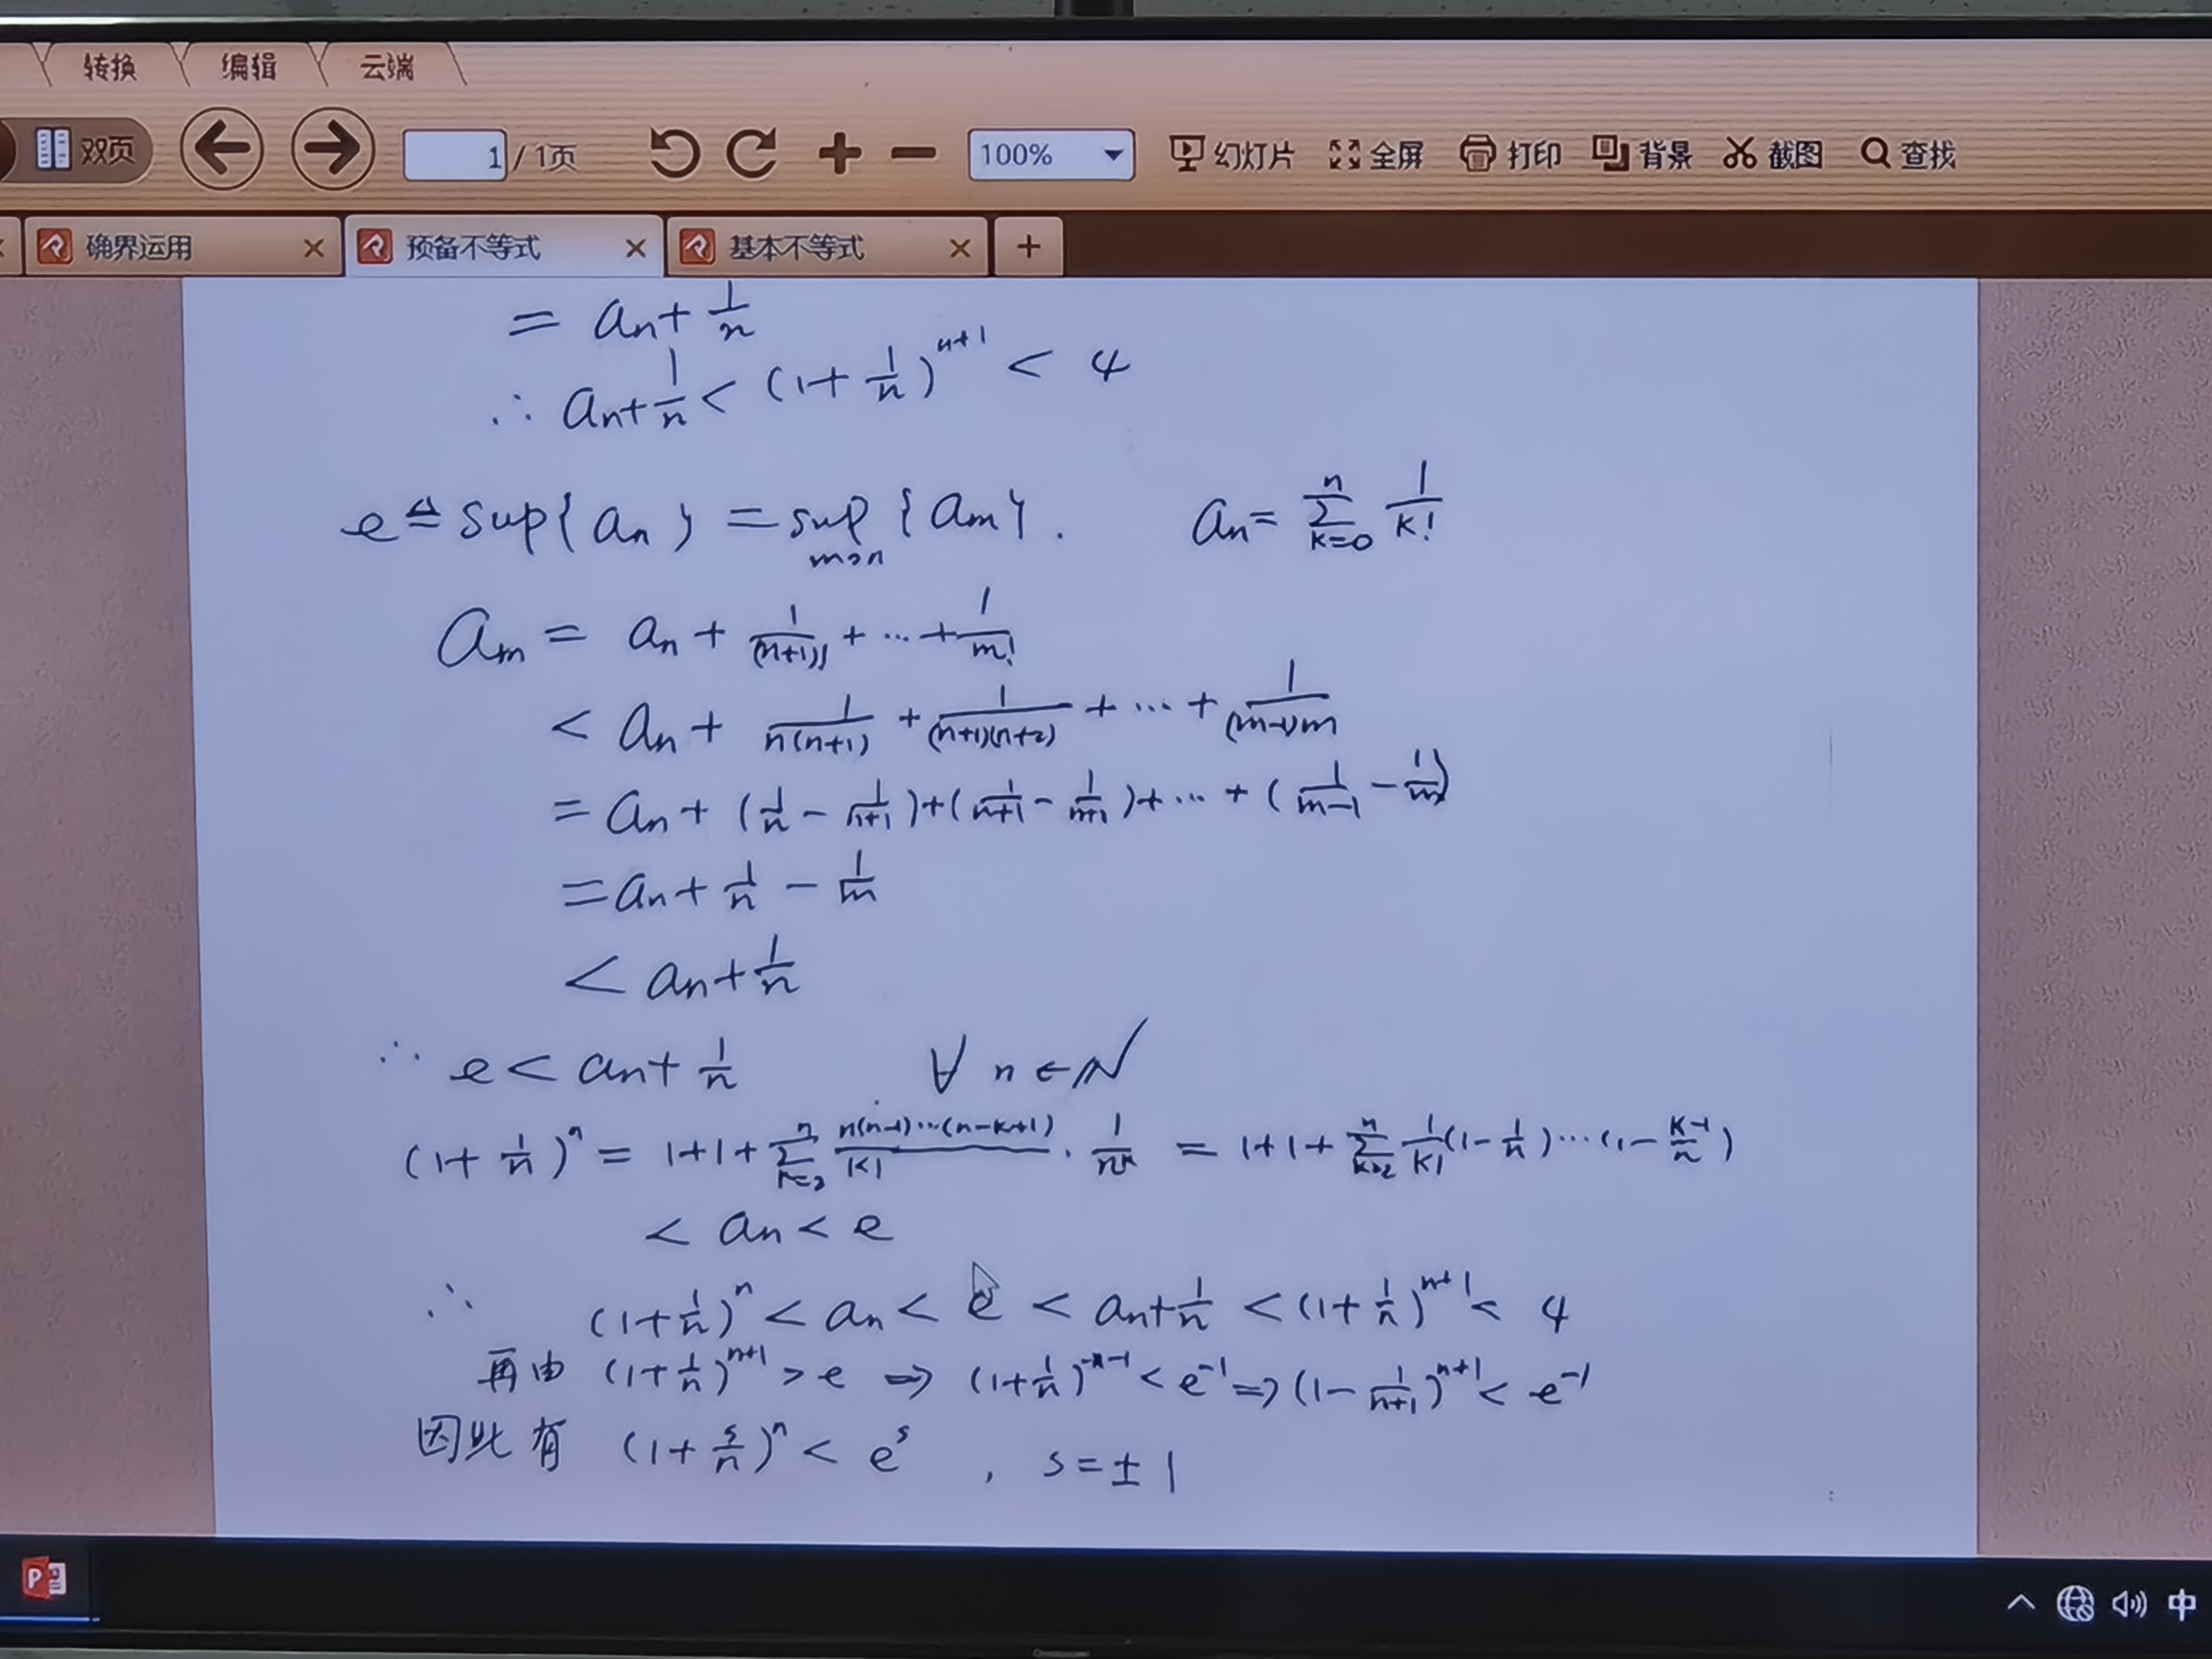 转换 编辑 云端
双页 1 / 1页 100% 幻灯片 全屏 打印 背景 截图 查找
确界运用 预备不等式 基本不等式
= aₙ + 1/n
∴ aₙ + 1/n < (1 + 1/n)ⁿ⁺¹ < 4
e ≜ sup{aₙ} = sup_{m>n}{aₘ}. aₙ = Σ_{k=0}^{n} 1/k!
aₘ = aₙ + 1/(n+1)! + ... + 1/m!
< aₙ + 1/n(n+1) + 1/(n+1)(n+2) + ... + 1/(m-1)m
= aₙ + (1/n - 1/(n+1)) + (1/(n+1) - 1/(n+1)) + ... + (1/(m-1) - 1/m)
= aₙ + 1/n - 1/m
< aₙ + 1/n
∴ e < aₙ + 1/n ∀ n ∈ N
(1 + 1/n)ⁿ = 1+1+ Σ_{k=2}^{n} n(n-1)...(n-k+1)/k! · 1/nᵏ = 1+1+ Σ_{k=2}^{n} 1/k! (1 - 1/n)...(1 - (k-1)/n)
< aₙ < e
∴ (1 + 1/n)ⁿ < aₙ < e < aₙ + 1/n < (1 + 1/n)ⁿ⁺¹ < 4
再由 (1 + 1/n)ⁿ⁺¹ > e ⇒ (1 + 1/n)⁻ⁿ⁻¹ < e⁻¹ ⇒ (1 - 1/(n+1))ⁿ⁺¹ < e⁻¹
因此有 (1 + s/n)ⁿ < eˢ , s = ±1
中